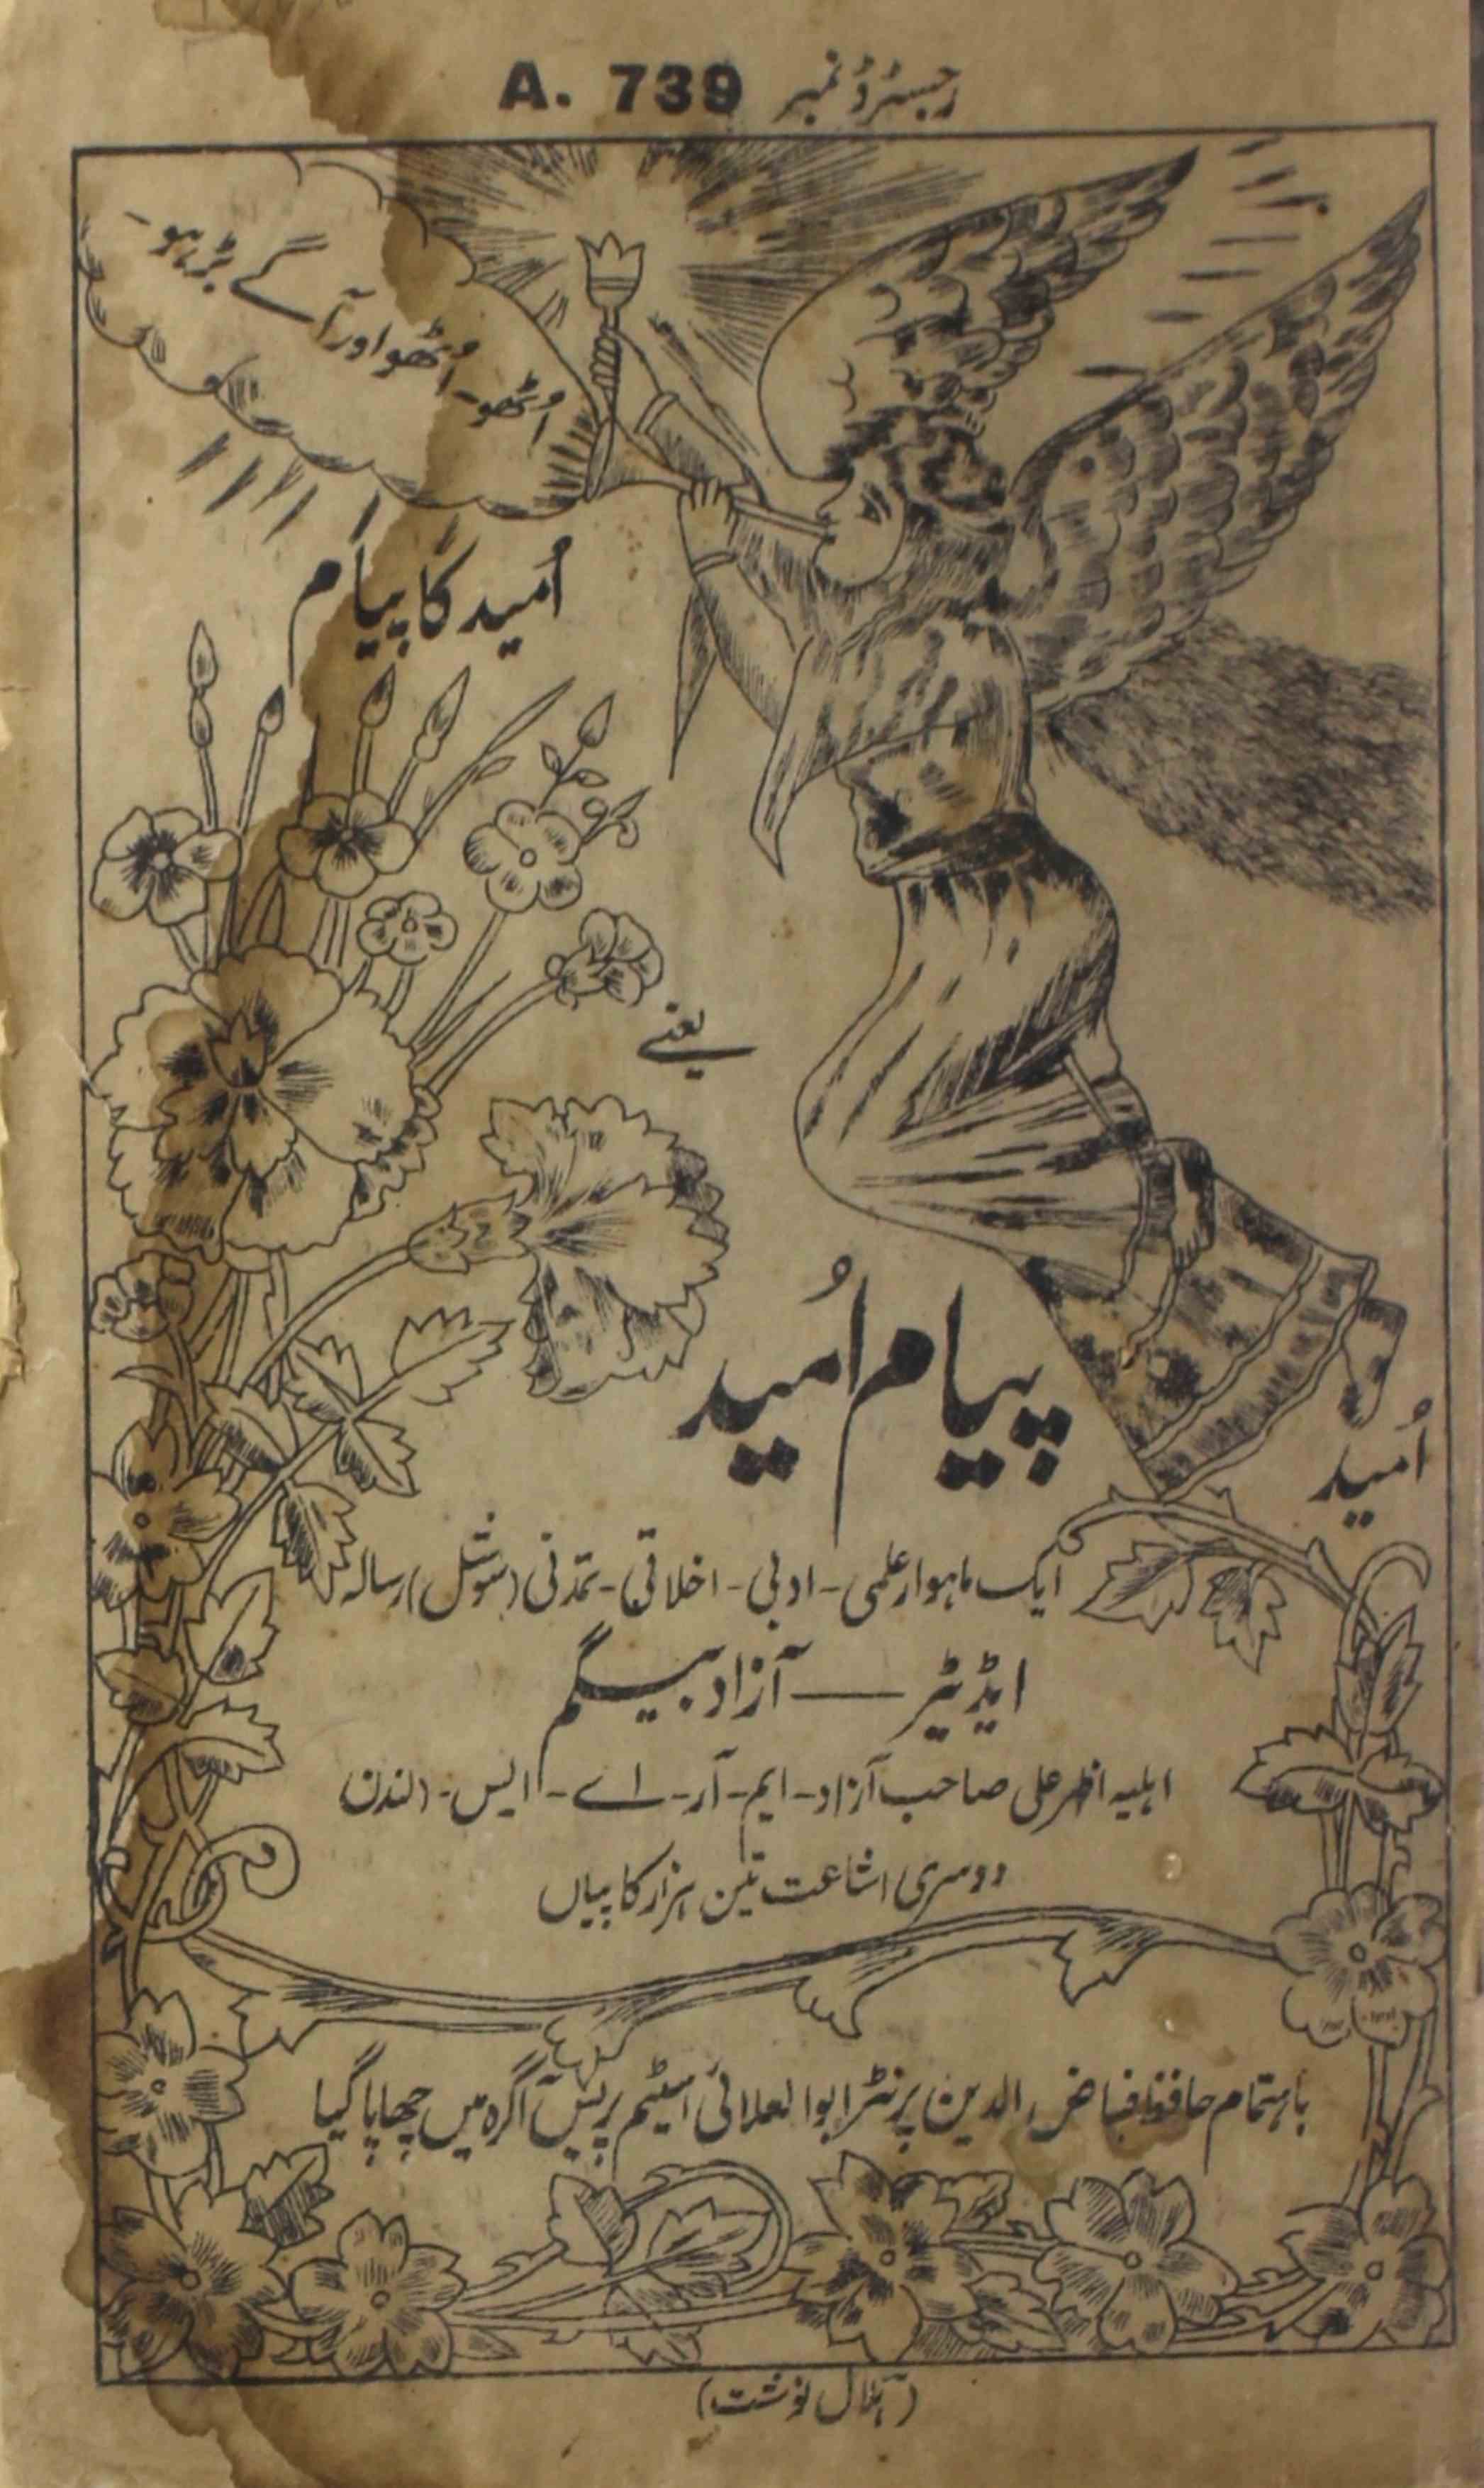 رجسٹرڈ نمبر A. 739
اُٹھو۔ اُٹھو اور آگے بڑہو۔
اُمید کا پیام
یعنے
پیام اُمید
اُمید
ایک ماہوار علمی۔ ادبی۔ اخلاقی۔ تمدنی (سوشل) رسالہ
ایڈیٹر — آزاد بیگم
اہلیہ اظہر علی صاحب آزاد۔ ایم۔ آر۔ اے۔ ایس۔ (لندن)
دوسری اشاعت تین ہزار کاپیاں
باہتمام حافظ فیاض الدین پرنٹر ابوالعلائی اسٹیم پریس آگرہ میں چھاپا گیا
(ہلال نوشت)